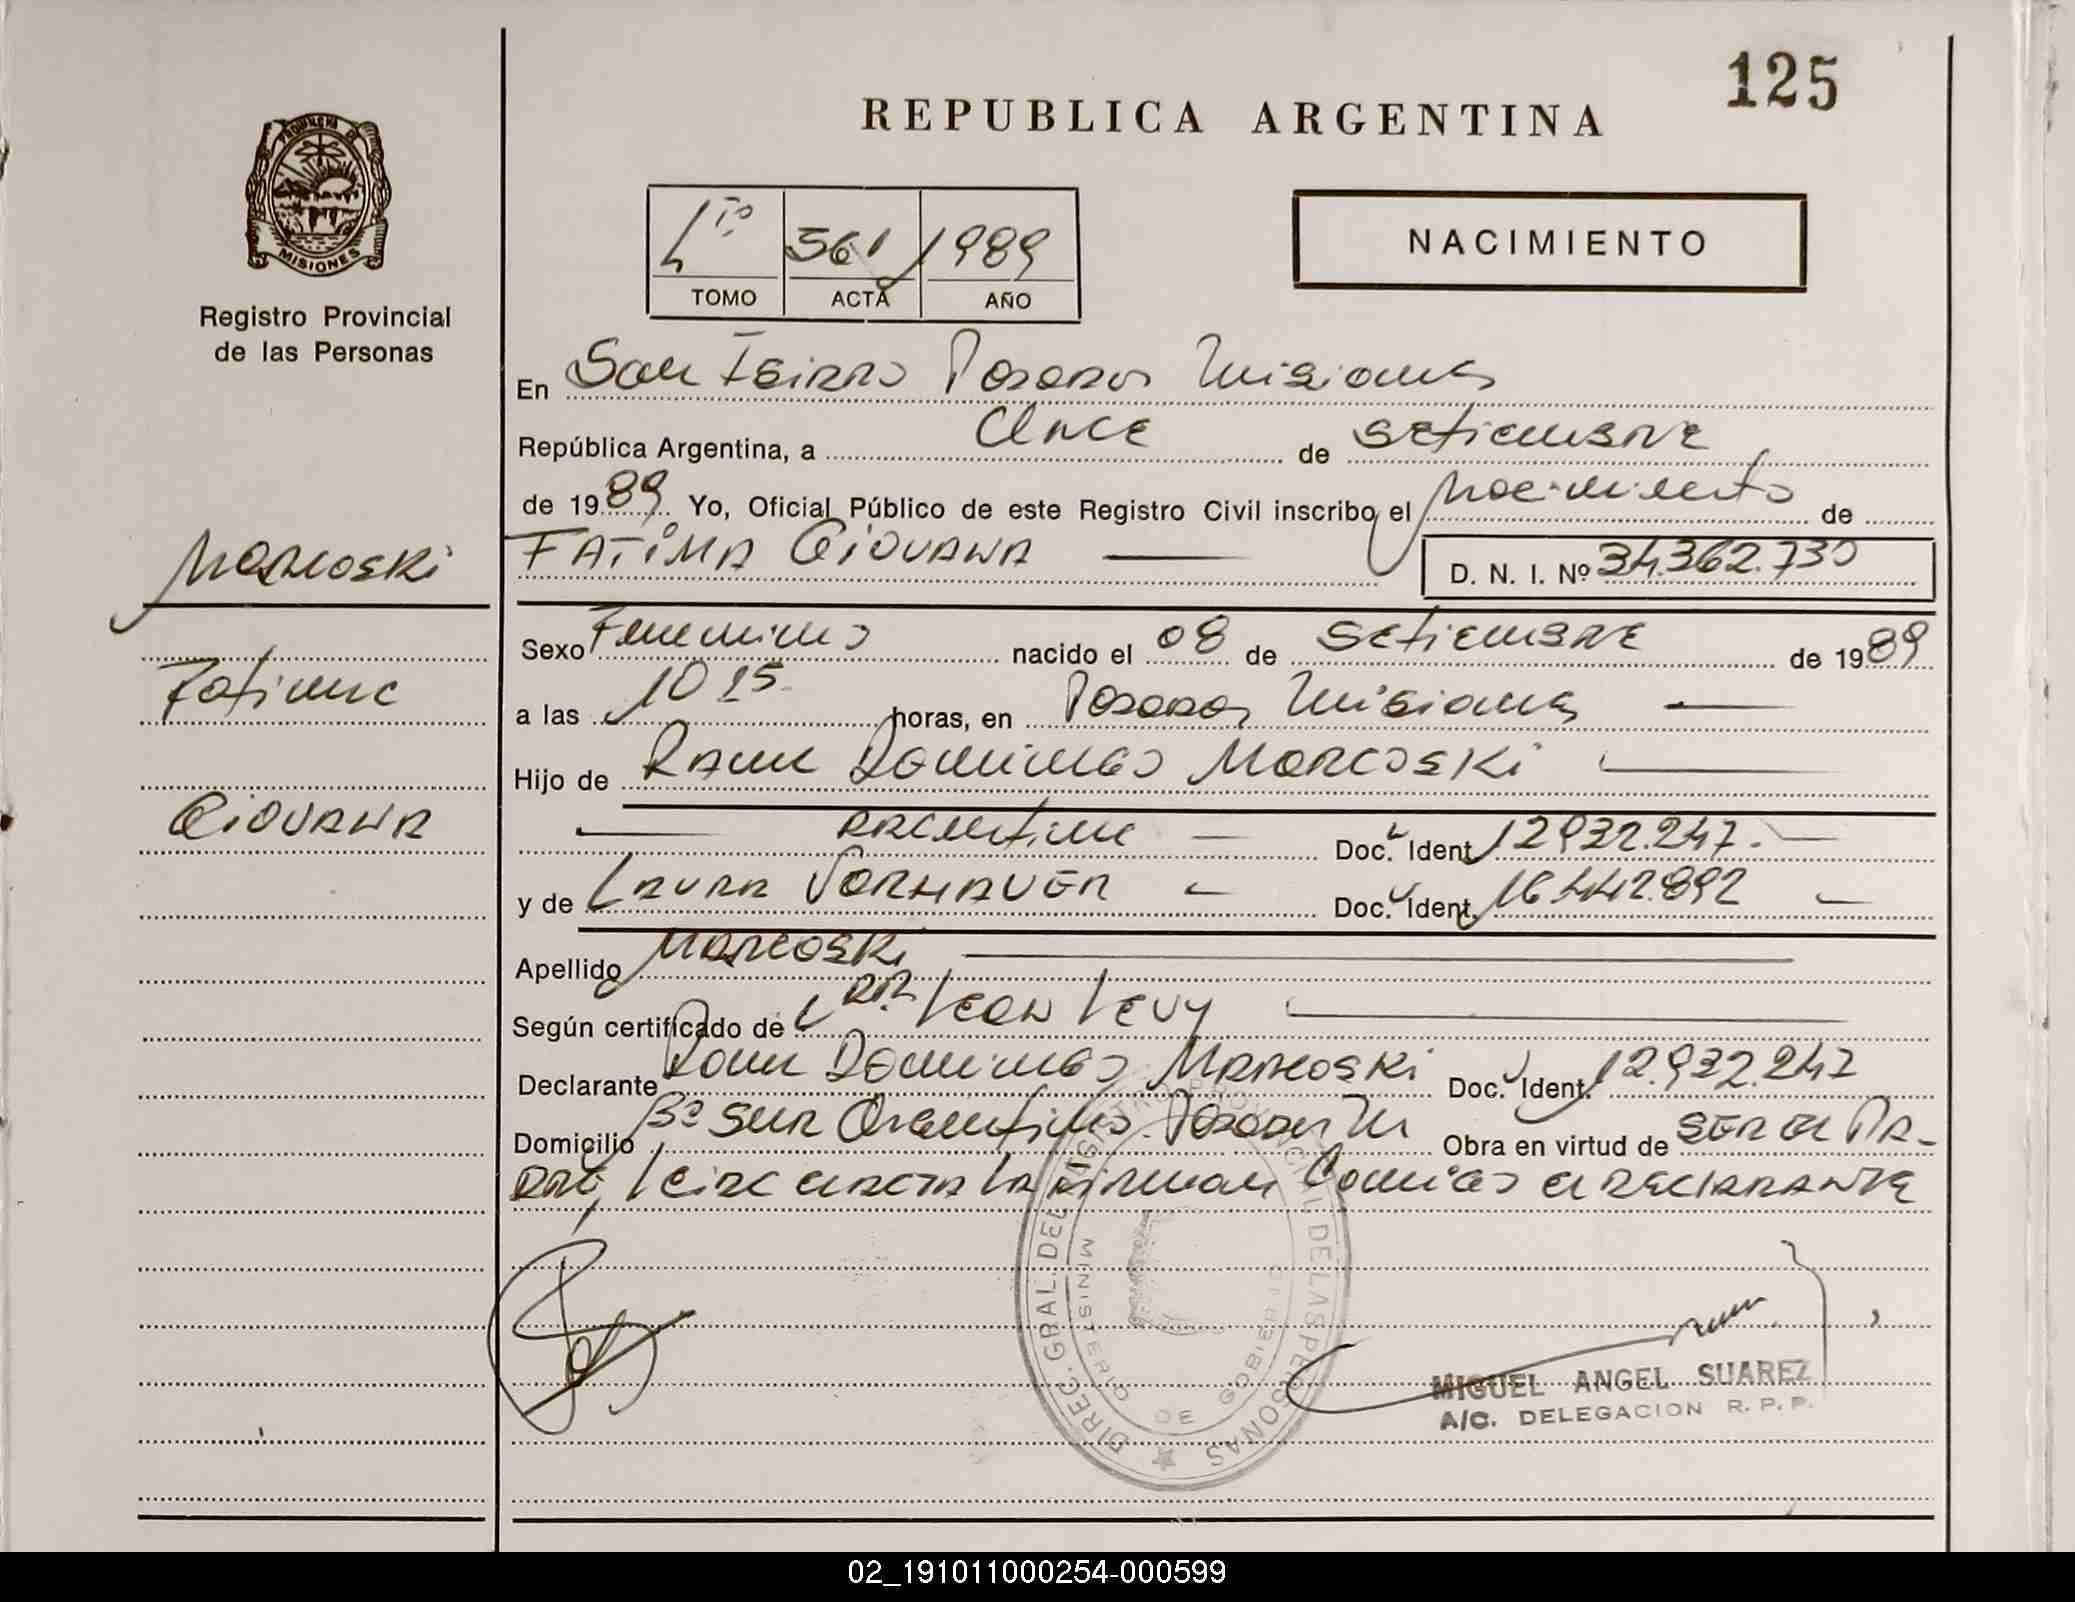 125
REPUBLICA ARGENTINA
PROVINCIA DE
MISIONES
Registro Provincial
de las Personas
561 1989
TOMO ACTA AÑO
NACIMIENTO
En San Isidro Posadas Misiones
República Argentina, a Once de setiembre
de 1989 Yo, Oficial Público de este Registro Civil inscribo el Nacimiento de
FATIMA GIOVANA
D. N. I. Nº 34.362.730
Marcoski
Fatima
GIOVANA
Sexo Femenino nacido el 08 de setiembre de 1989
a las 10 15 horas, en Posadas Misiones
Hijo de Domingo Marcoski
argentino Doc. Ident. 12.932.247.
y de LAURA VORHAUER Doc. Ident. 16.442.892
Apellido Marcoski
Según certificado de DR. Leon Levy
Declarante Domingo Marcoski Doc. Ident. 12.932.247
Domicilio Bº Sur Argentino Posadas Obra en virtud de SER EL PA-
DRE, Leida el acta la firman Conmigo el DECLARANTE
DIREC. GRAL. DEL REGISTRO PROVINCIAL DE LAS PERSONAS
MINISTERIO DE GOBIERNO
MIGUEL ANGEL SUAREZ
A/C. DELEGACION R. P. P.
02_191011000254-000599